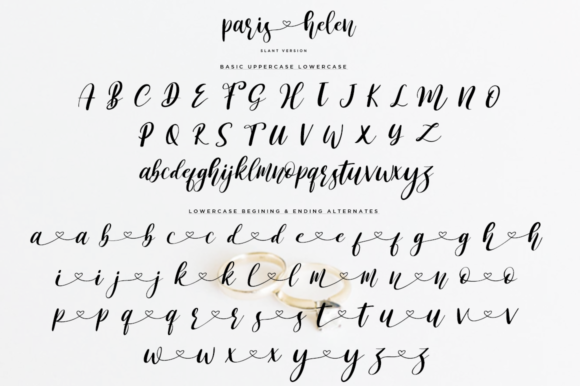 paris♡helen
SLANT VERSION
BASIC UPPERCASE LOWERCASE
A B C D E F G H I J K L M N O
P Q R S T U V W X Y Z
abcdefghijklmnopqrstuvwxyz
LOWERCASE BEGINING & ENDING ALTERNATES
a♡a b♡b c♡c d♡d e♡e f♡f g♡g h♡h
i♡i j♡j k♡k l♡l m♡m n♡n o♡o
p♡p q♡q r♡r s♡s t♡t u♡u v♡v
w♡w x♡x y♡y z♡z